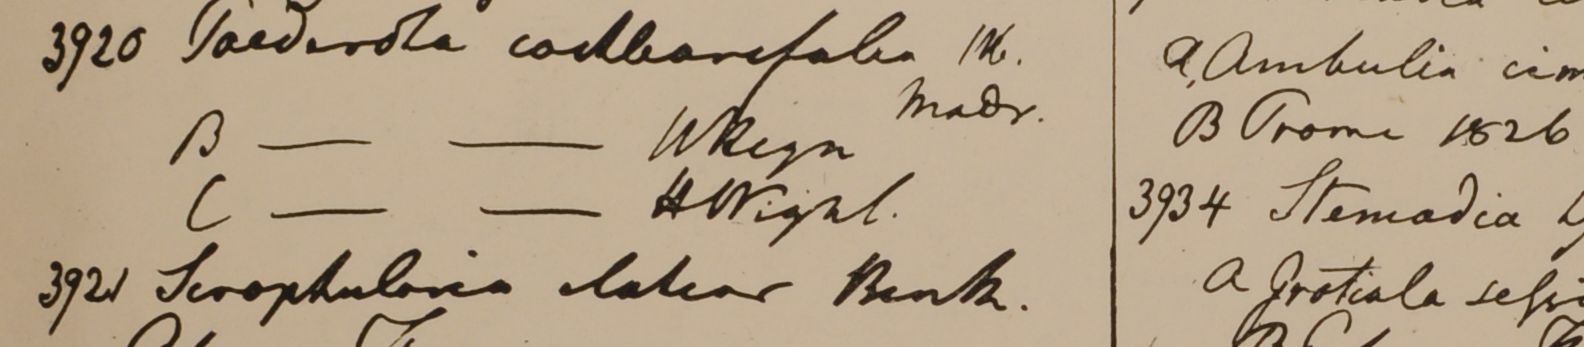 3920 Paederota cochlearifolia Hb.
Madr.
B — — WRegn
C — — HWight.
3921 Scrophularia elatior Benth.
a Ambulia cim
B Prome 1826
3934 Stemodia
a Gratiola